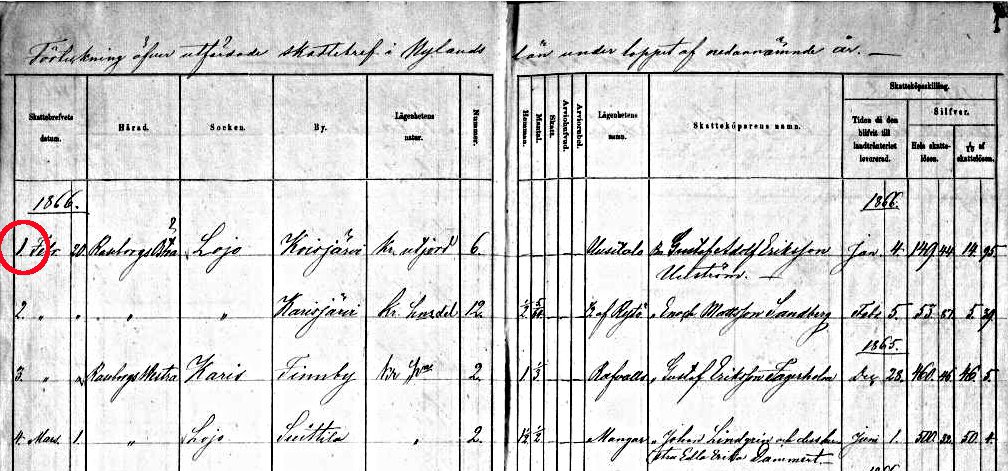 Förteckning öfver utfärdade skattebref i Nylands län under loppet af nedannämnde år.
Skattebrefvets datum. Härad. Socken. By. Lägenhetens natur. Nummer. Hemman. Mantal. Skatt. Lägenhetens namn. Skatteköparens namn. Skatteköpsskilling.
Tiden då den blifvit till landtränteriet levererad. Silfver.
Hela skattelösen. 1/10 af skattelösen.
1866. 1866.
1. Febr. 20. Raseborgs Östra ? Lojo Koisjärvi kr. utjord 6. Uusitalo Gustaf Adolf Eriksson Jan. 4. 149. 44. 14. 95.
2. " " " " Karisjärvi kr. 12. 1/2 Enoch Mattsson Sandberg Febr. 5. 53. 5.
1865.
3. " " Raseborgs Westra Karis Finnby 2. 1 1/3 Rafvalls Gustaf Eriksson Fagerholm Dec. 28. 460. 46. 46. 5.
4. Mars. 1. " Lojo Suittila " 2. 1/2 Mangar Johan Lindgrén och dess hustru Edla Erika Dammert Juni 1. 500. 50. 4.